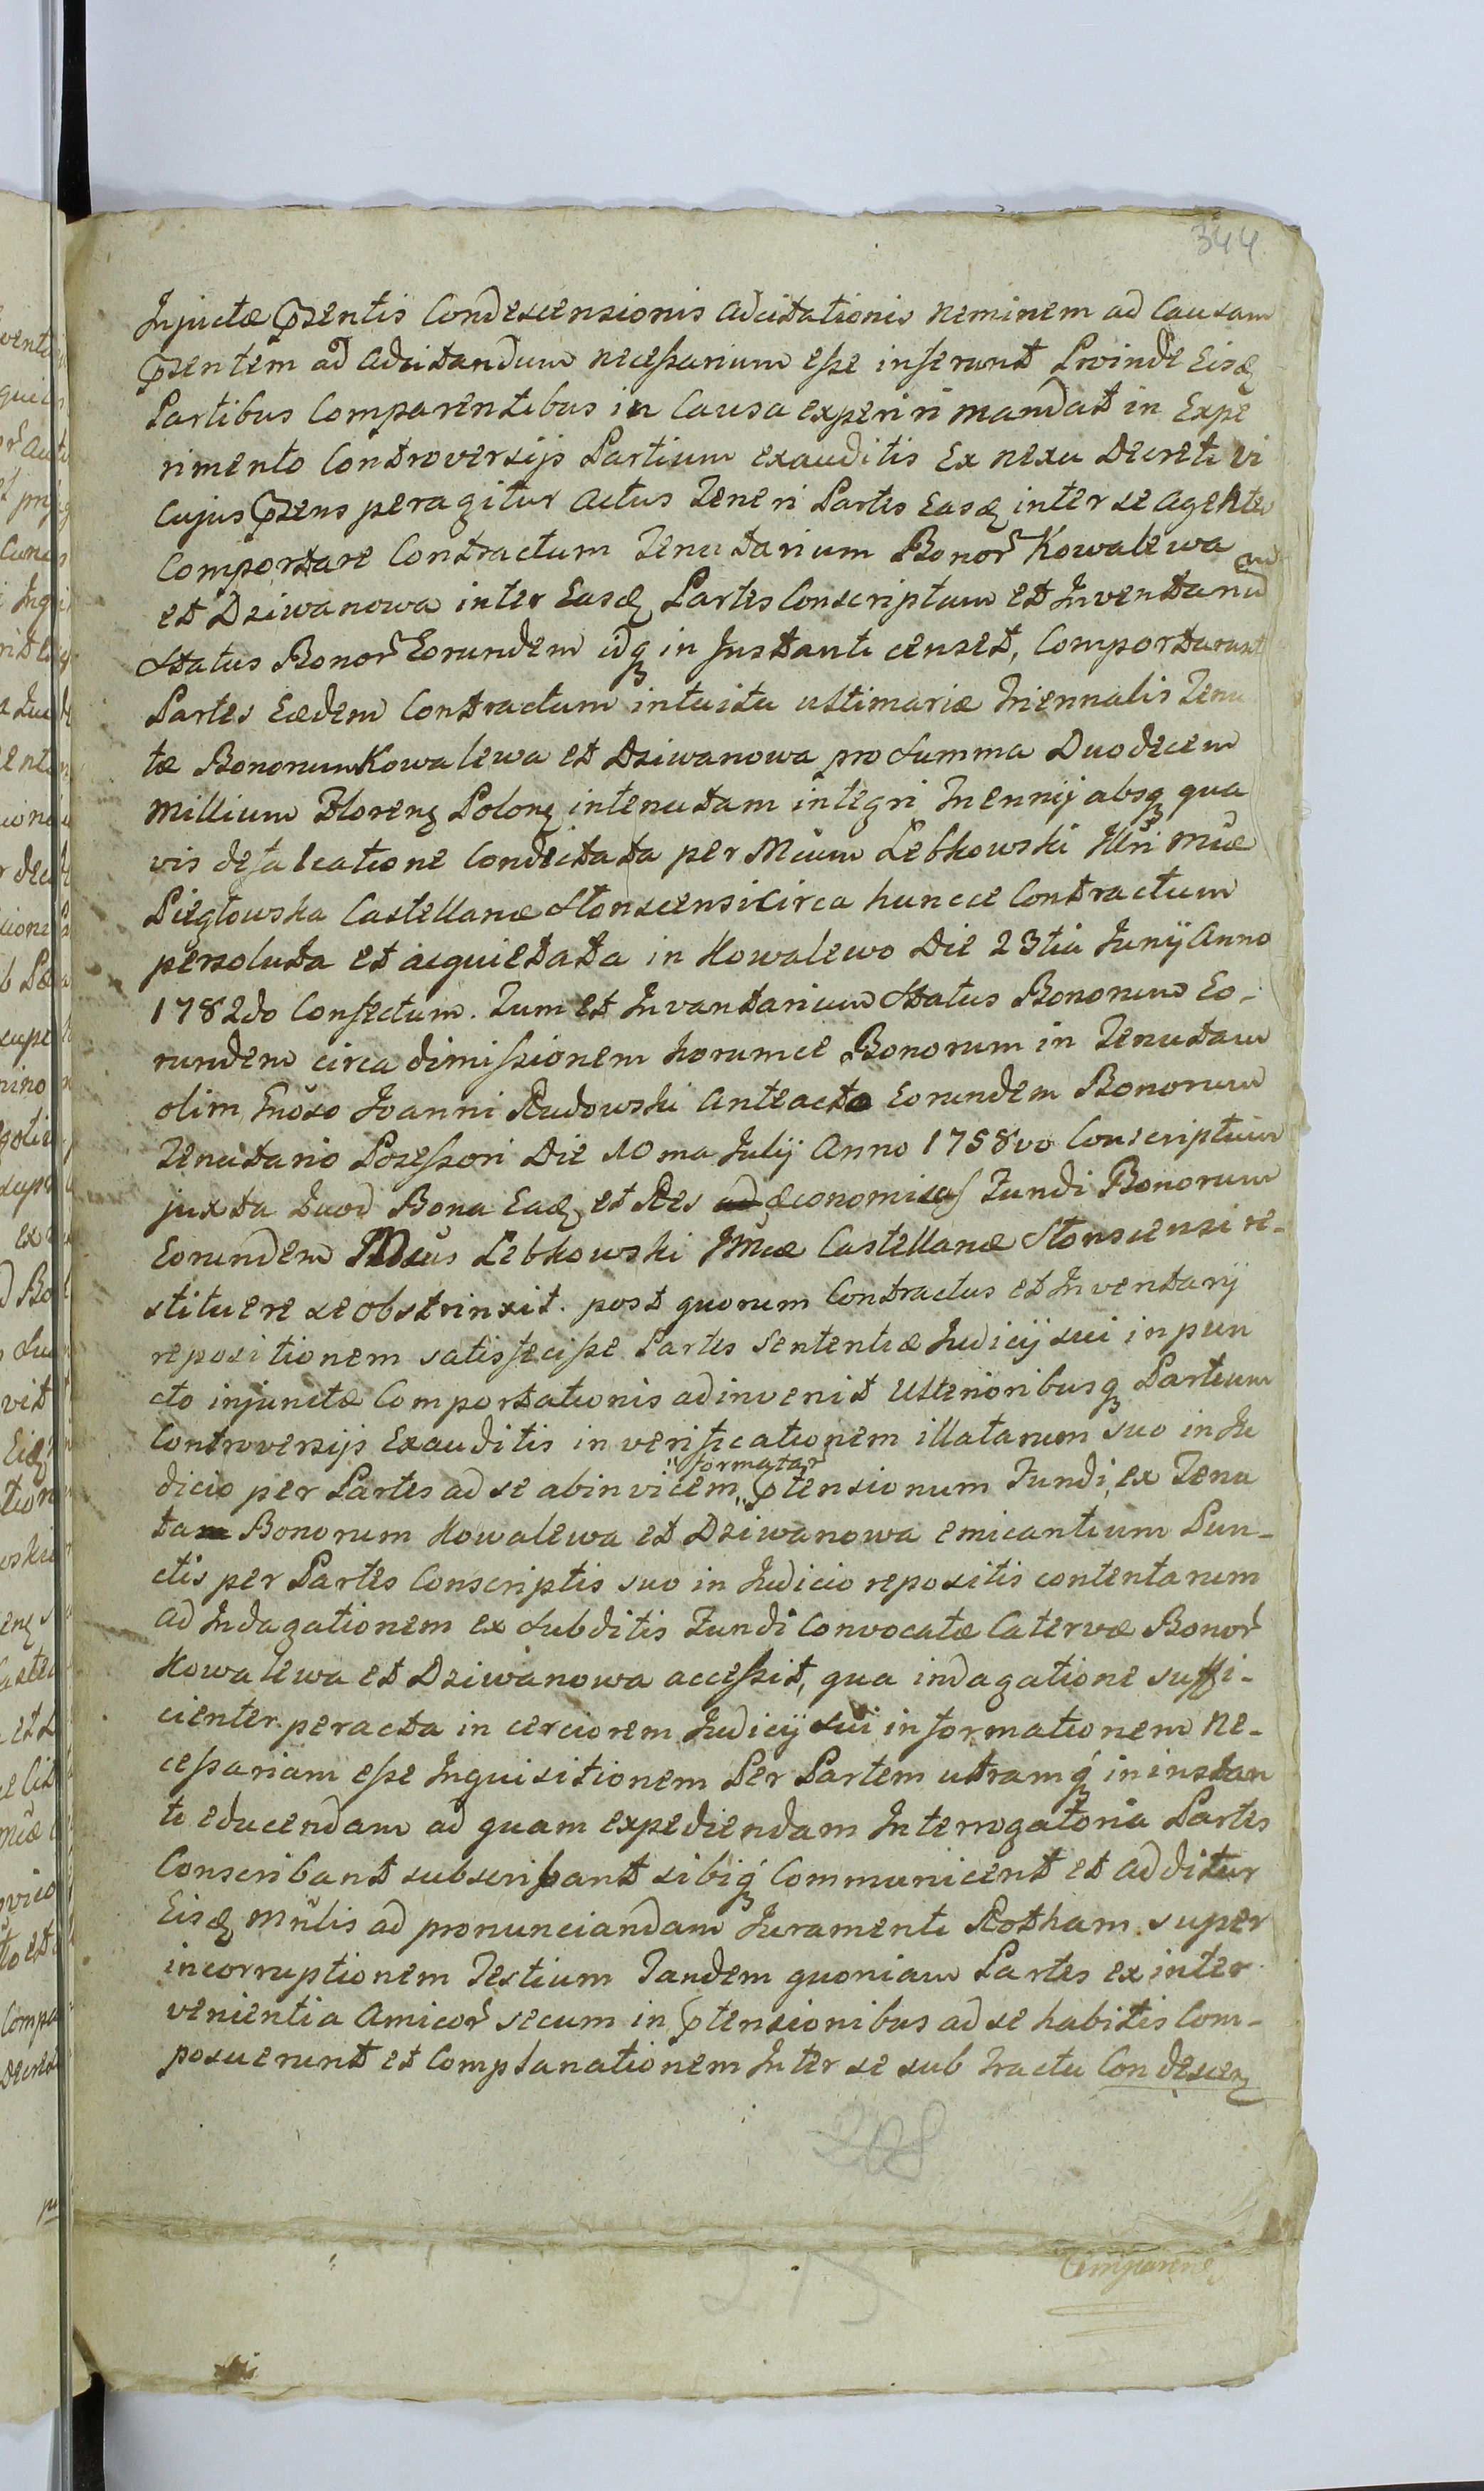 344
Injuctæ Pzentis Condescensionis adcitationis neminem ad Causam
Pzentem ad adcitandum necessarium esse inferunt Proinde Eisq
Partibus Comparentibus in Causa experiri mandat in Expe
rimento Controversijs Partium exauditis Ex nexu Decreti vi
Cujus Pzens peragitur actus Teneri Partes Easq inter se agentes
Comportare Contractum Tenutarium Bonor Kowalewa
et Dziwanowa inter Easq Partes Conscriptum et Inventariu
Status Bonor Eorundem idq in Instanti censet, Comportarunt
Partes Eædem Contractum intuitu ultimariæ Triennalis Tenu
tæ Bonorum Kowalewa et Dziwanowa pro Summa Duodecem
Millium Floren Polon intenutam integri Triennij absq qua
vis defalcatione Condictata per Mcum Lebkowski Illri Mcæ
Piegłowska Castellanæ Słonscensi Circa huncce Contractum
persoluta et acquietata in Kowalewo Die 23tia Junij Anno
1782do Confectum. Tum et Invantarium Status Bonorum Eo-
rundem circa dimissionem horumce Bonorum in Tenutam
olim Gnoso Joanni Rudowski anteacto Eorundem Bonorum
Tenutario Possessori Die 10ma Julij Anno 1758vo Conscriptum
juxta Quod Bona Eaq et Res ad æconomicas Fundi Bonorum
Eorundem Mcus Lebkowski Mcæ Castellanæ Słonscensi re-
stituere se obstrinxit. post quorum Contractus et Inventarij
repositionem satisfecisse Partes Sententiæ Judicij sui in pun
cto injunctæ Comportationis adinvenit Ulterioribusq Partium
Controversijs Exauditis in verificationem illatarum suo in Ju
formatar
dicio per Partes ad se abinvicem „ Ptensionum Fundi, ex Tenu
tam Bonorum Kowalewa et Dziwanowa emicantium Pun-
ctis per Partes Conscriptis suo in Judicio repositis contentarum
ad Indagationem ex Subditis Fundi Convocatæ Catervæ Bonor
Kowalewa et Dziwanowa accessit, qua indagatione suffi-
cienter peracta in cerciorem Judicij sui informationem ne-
cessariam esse Inquisitionem Per Partem utramq in instan
ti educendam ad quam expediendam Interrogatoria Partes
Conscribant subscribant sibiq Communicent et additur
Eisq Mnlis ad pronunciandam Juramenti Rotham super
incorruptionem Testium Tandem quoniam Partes ex inter
venientia Amicor secum in Ptensionibus ad se habitis Com-
posuerunt et Complanationem Inter se sub Tractu Condescen
208